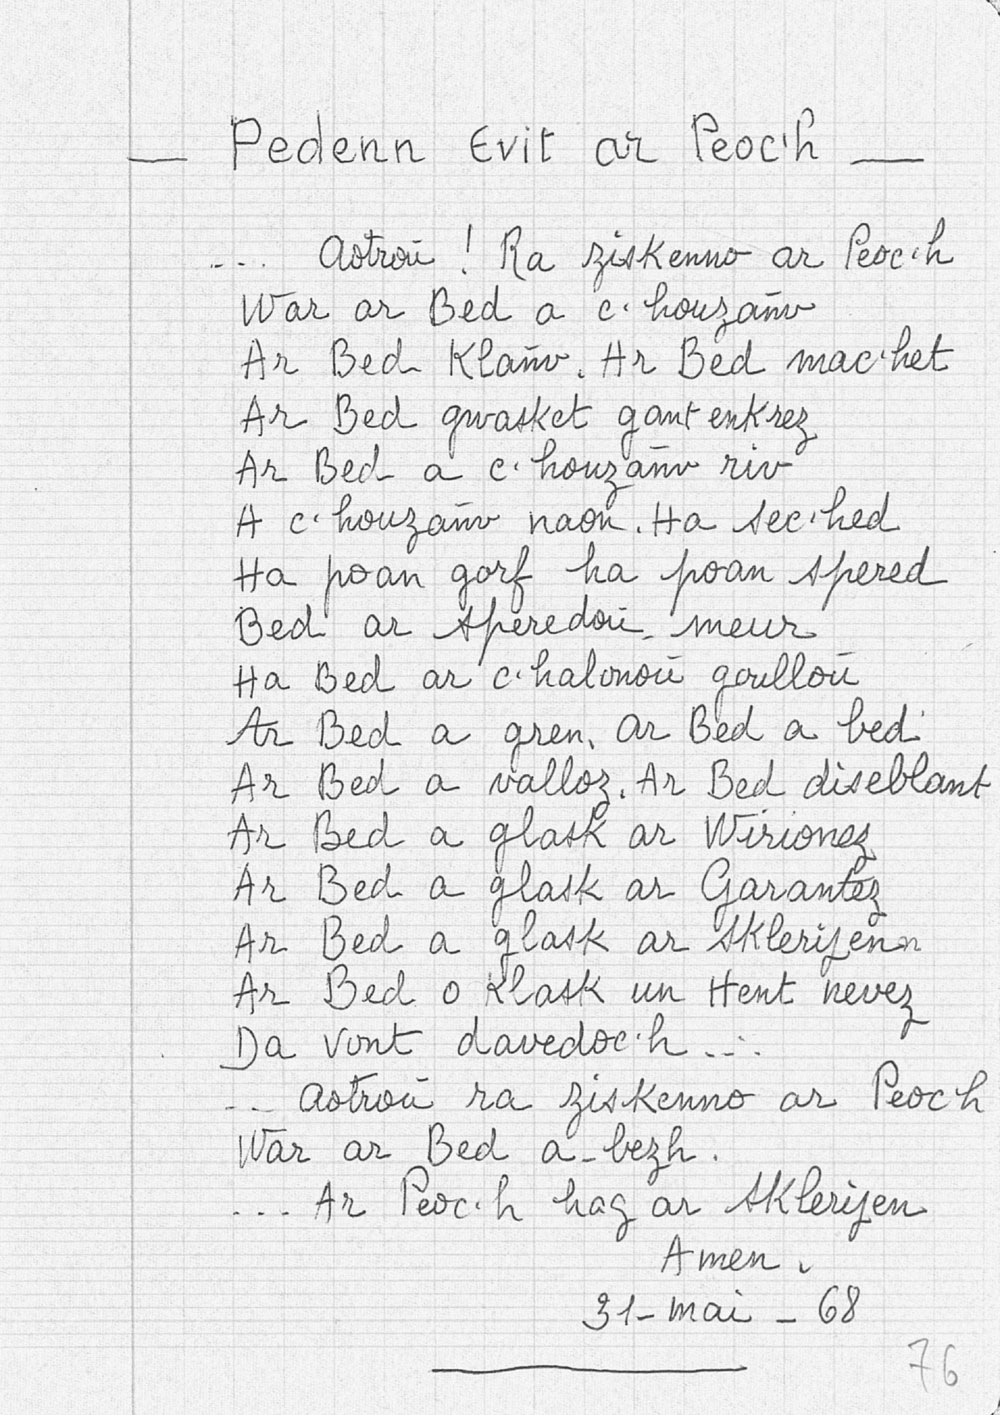 — Pedenn Evit ar Peoc'h —
... Aotroū ! Ra ziskenno ar Peoc'h
War ar Bed a c'houzañv
Ar Bed Klañv. Ar Bed mac'het
Ar Bed gwasket gant enkrez
Ar Bed a c'houzañv riv
A c'houzañv naon. Ha sec'hed
Ha poan gorf ha poan spered
Bed ar speredoū meur
Ha Bed ar c'halonoū goulloū
Ar Bed a gren. Ar Bed a bed
Ar Bed a valloz. Ar Bed diseblant
Ar Bed a glask ar Wirionez
Ar Bed a glask ar Garantez
Ar Bed a glask ar Sklerijenn
Ar Bed o Klask un Hent nevez
Da vont davedoc'h ...
.. Aotroū ra ziskenno ar Peoc'h
War ar Bed a-bezh.
... Ar Peoc'h hag ar Sklerijen
Amen.
31-mai-68
76